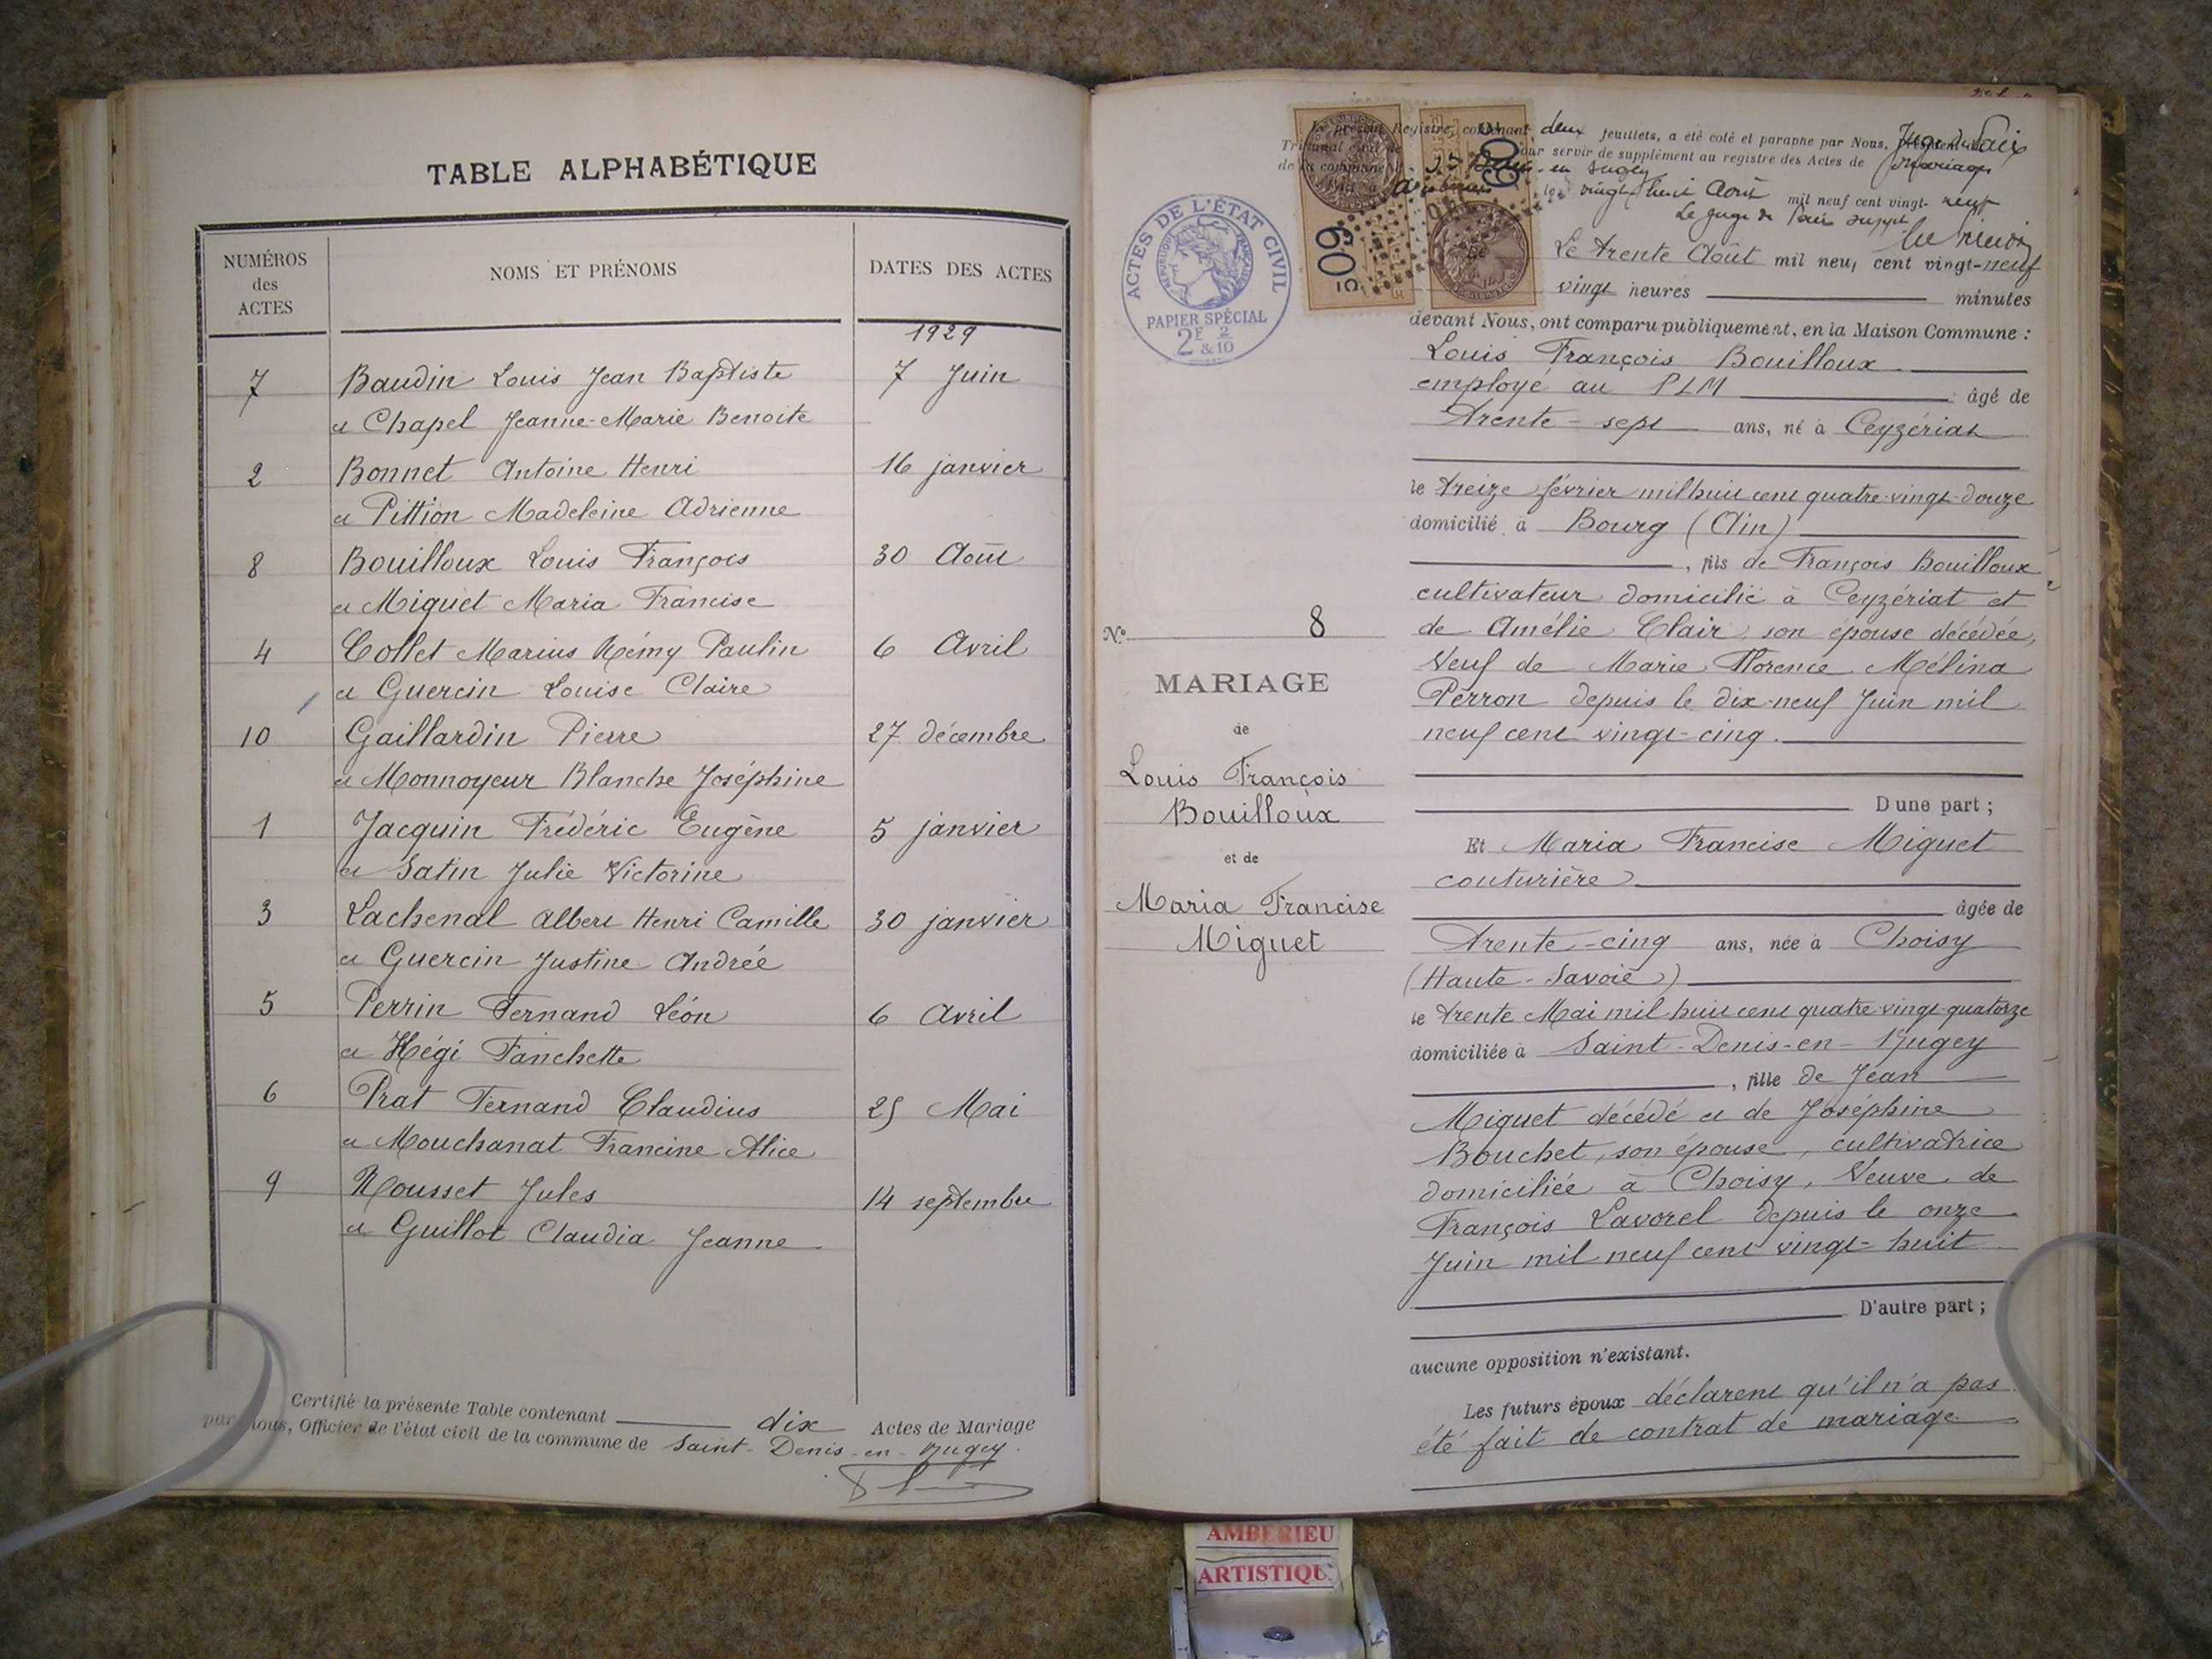 TABLE ALPHABÉTIQUE
NUMÉROS des ACTES
NOMS ET PRÉNOMS
DATES DES ACTES
1929
7 Baudin Louis Jean Baptiste 7 Juin
et Chapel Jeanne-Marie Benoite
2 Bonnet Antoine Henri 16 janvier
et Pittion Madeleine Adrienne
8 Bouilloux Louis François 30 Août
et Miguet Maria Francise
4 Collet Marius Rémy Paulin 6 Avril
et Guercin Louise Claire
10 Gaillardin Pierre 27 décembre
et Monnoyeur Blanche Joséphine
1 Jacquin Frédéric Eugène 5 janvier
et Satin Julie Victorine
3 Lachenal Albert Henri Camille 30 janvier
et Guercin Justine Andrée
5 Perrin Fernand Léon 6 Avril
et Hégi Fanchette
6 Prat Fernand Claudius 25 Mai
et Mouchanat Francine Alice
9 Rousset Jules 14 septembre
et Guillot Claudia Jeanne
Certifié la présente Table contenant dix Actes de Mariage
par nous, Officier de l'état civil de la commune de Saint-Denis-en-Bugey.
Le présent Registre, contenant deux feuillets, a été coté et paraphé par Nous, Juge de Paix
Tribunal civil de pour servir de supplément au registre des Actes de Mariage
de la commune de en Bugey
le vingt huit Août mil neuf cent vingt-neuf
Le Juge de Paix suppt
ACTES DE L'ÉTAT CIVIL
RÉPUBLIQUE FRANÇAISE
PAPIER SPÉCIAL
2F & 2/10
60
60
Le trente Août mil neuf cent vingt-neuf
vingt heures minutes
devant Nous, ont comparu publiquement, en la Maison Commune :
Louis François Bouilloux
employé au PLM âgé de
trente-sept ans, né à Ceyzériat
le treize février mil huit cent quatre-vingt-douze
domicilié à Bourg (Ain)
, fils de François Bouilloux
cultivateur domicilié à Ceyzériat et
de Amélie Clair, son épouse décédée,
Veuf de Marie Florence Mélina
Perron depuis le dix-neuf Juin mil
neuf cent vingt-cinq.
D'une part ;
N° 8
MARIAGE
de
Louis François
Bouilloux
et de
Maria Francise
Miguet
Et Maria Francise Miguet
couturière
âgée de
trente-cinq ans, née à Choisy
(Haute-Savoie)
le trente Mai mil huit cent quatre-vingt-quatorze
domiciliée à Saint-Denis-en-Bugey
, fille de Jean
Miguet décédé et de Joséphine
Bouchet, son épouse, cultivatrice
domiciliée à Choisy, Veuve de
François Lavorel depuis le onze
Juin mil neuf cent vingt-huit
D'autre part ;
aucune opposition n'existant.
Les futurs époux déclarent qu'il n'a pas
été fait de contrat de mariage
AMBERIEU
ARTISTIQU